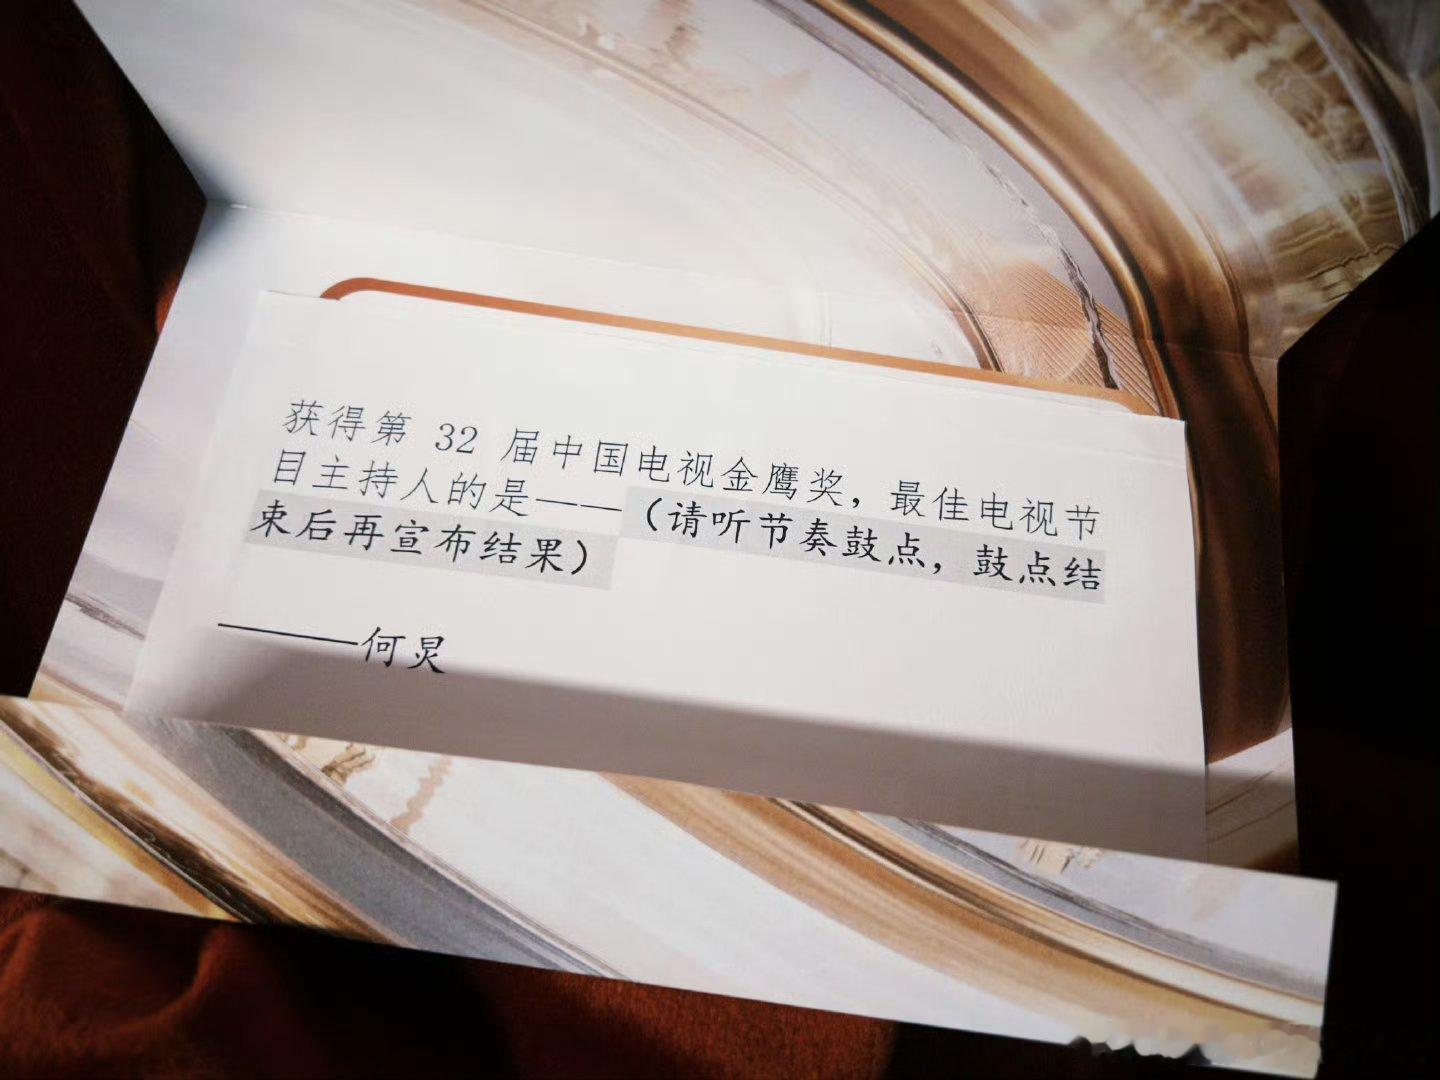 获得第 32 届中国电视金鹰奖，最佳电视节
目主持人的是——（请听节奏鼓点，鼓点结
束后再宣布结果）
———何炅